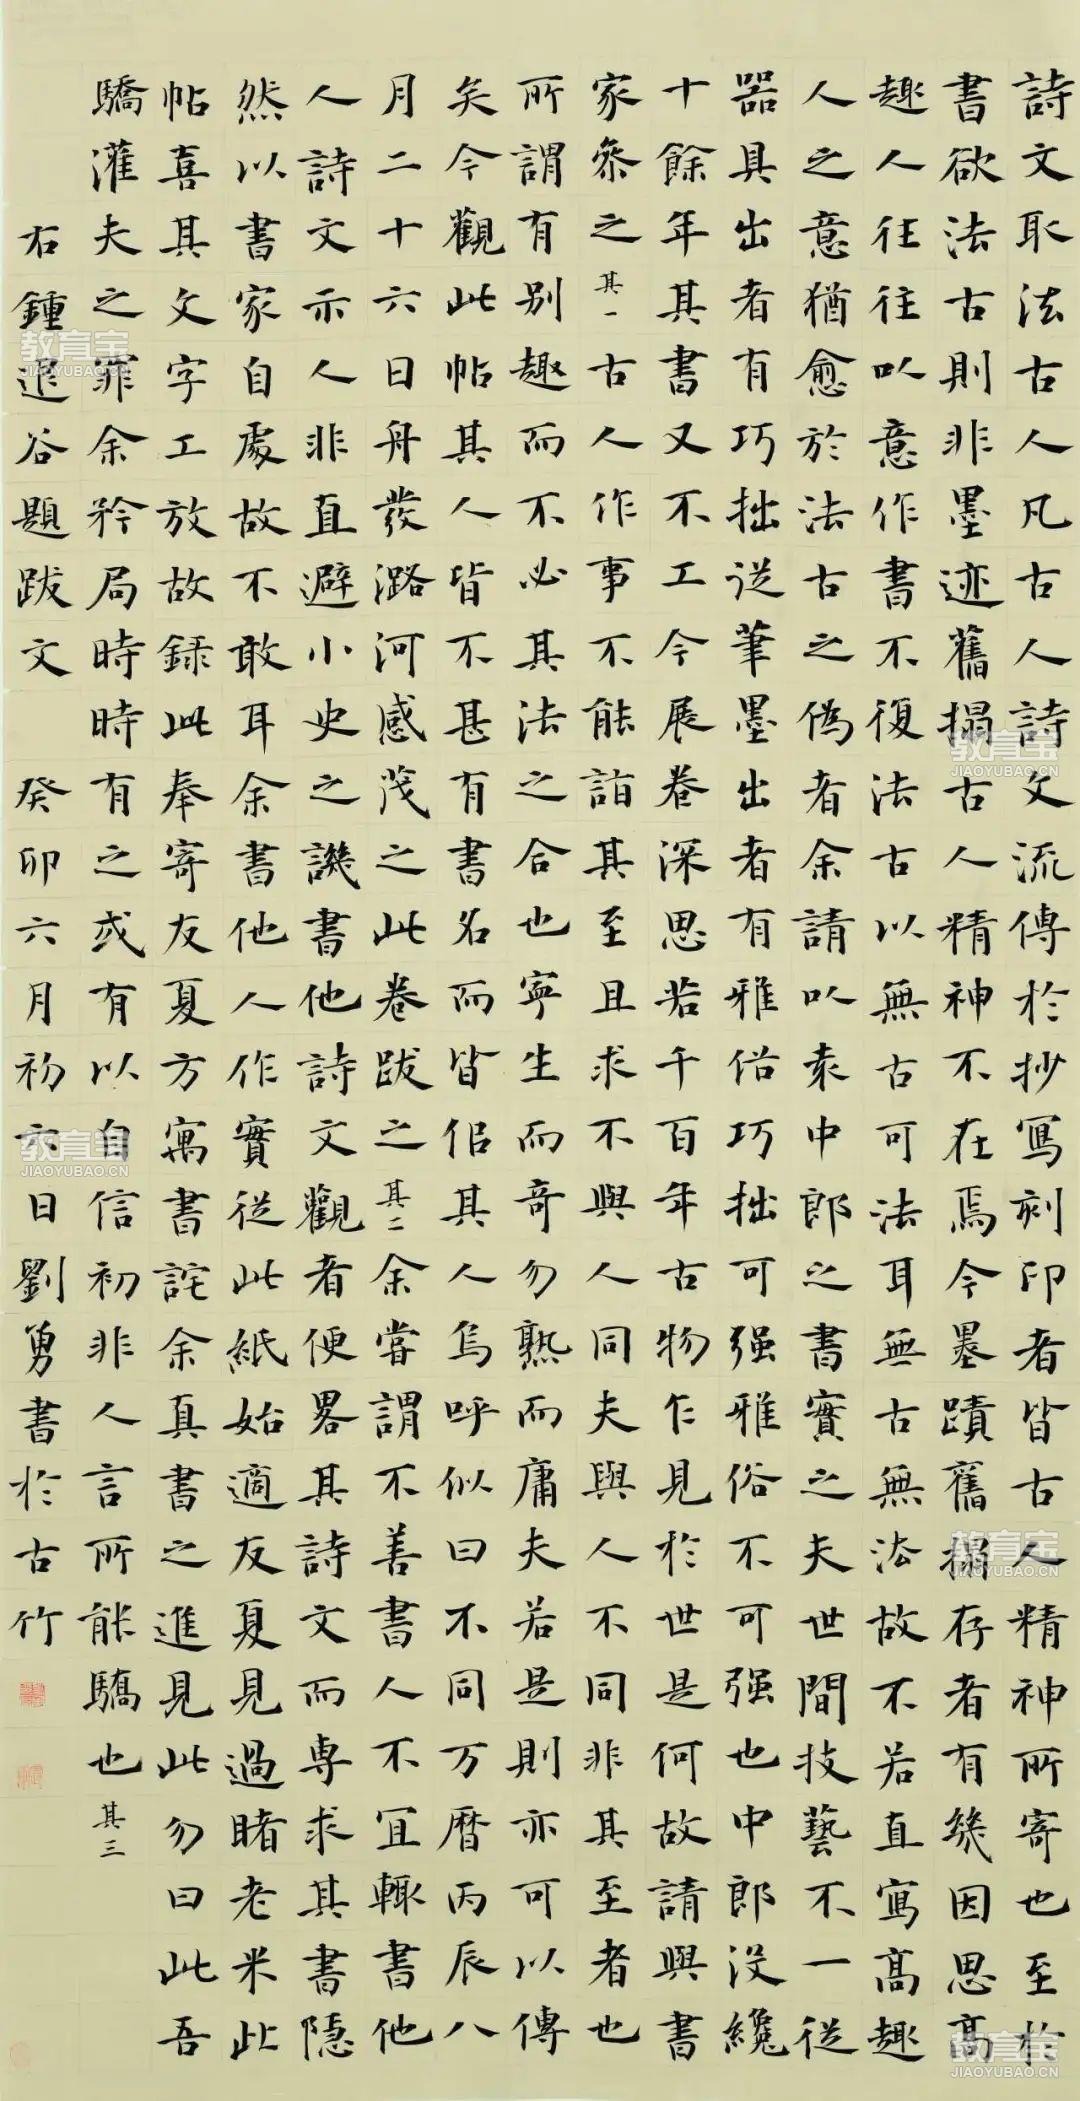 詩文取法古人凡古人詩文流傳於抄寫刻印者皆古人精神所寄也至於
書欲法古則非墨迹舊搨古人精神不在焉今墨蹟舊搨存者有幾因思高
趣人往往以意作書不復法古以無古可法耳無古無法故不若直寫高趣
人之意猶愈於法古之偽者余請以袁中郎之書實之夫世間技藝不一從
器具出者有巧拙從筆墨出者有雅俗巧拙可强雅俗不可强也中郎沒纔
十餘年其書又不工今展卷深思若千百年古物乍見於世是何故請與書
家參之其一古人作事不能詣其至且求不與人同夫與人不同非其至者也
所謂有别趣而不必其法之合也寧生而奇勿熟而庸夫若是則亦可以傳
矣今觀此帖其人皆不甚有書名而皆侣其人烏呼似曰不同万曆丙辰八
月二十六日舟發潞河感茂之此卷跋之其二余嘗謂不善書人不宜輒書他
人詩文示人非直避小史之譏書他詩文觀者便畧其詩文而専求其書隱
然以書家自處故不敢耳余書他人作實從此紙始適友夏見過睹老米此
帖喜其文字工放故録此奉寄友夏方寓書詫余真書之進見此勿曰此吾
驕灌夫之罪余矜局時時有之或有以自信初非人言所能驕也其三
右鍾退谷題跋文 癸卯六月初六日劉勇書於古竹
教育宝
JIAOYUBAO.CN
教育宝
JIAOYUBAO.CN
教育宝
JIAOYUBAO.CN
教育宝
JIAOYUBAO.CN
教育宝
JIAOYUBAO.CN
教育宝
JIAOYUBAO.CN